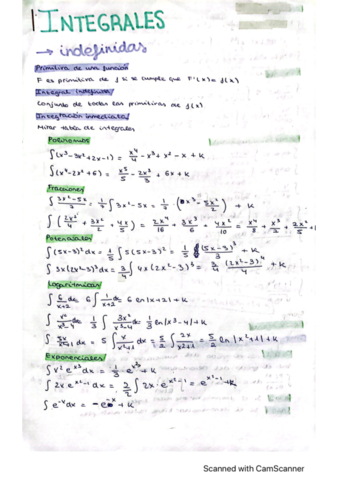 INTEGRALES
→ indefinidas
Primitiva de una función
F es primitiva de f si se cumple que F'(x) = f(x)
Integral Indefinida
Conjunto de todas las primitivas de f(x)
Integración inmediata
Mirar tabla de integrales
Polinomios
∫(x³-3x²+2x-1) = x⁴/4 - x³ + x² - x + k
∫(x⁴-2x²+6) = x⁵/5 - 2x³/3 + 6x + k
Fracciones
∫(2x³/4 + 3x²/2 + 4x/5) = 2x⁴/16 + 3x³/6 + 4x²/10 = x⁴/8 + x³/2 +
Potenciales
∫(5x-3)²dx = 1/5 ∫5(5x-3)² = 1/5 (5x-3)³/3 + k
∫3x(2x²-3)³dx = 3/4 ∫4x(2x²-3)³ = 3/4 (2x²-3)⁴/4 + k
Logarítmicas
∫6/x+2 dx 6∫1/x+2 dx 6 ln|x+2| + k
1/3 ∫3x²/x³-4 = 1/3 ln|x³-4| + k
∫5x/x²+1 dx = 5∫x/x²+1 dx = 5/2 ∫2x/x²+1 = 5/2 ln|x²+1| + k
Exponenciales
∫x² eˣ³ dx = 1/3 eˣ³ + k
∫2x eˣ²⁻¹ dx = 2/2 ∫2x·eˣ²⁻¹ = eˣ²⁻¹ + k
∫e⁻ˣdx = -e⁻ˣ + k
Scanned with CamScanner